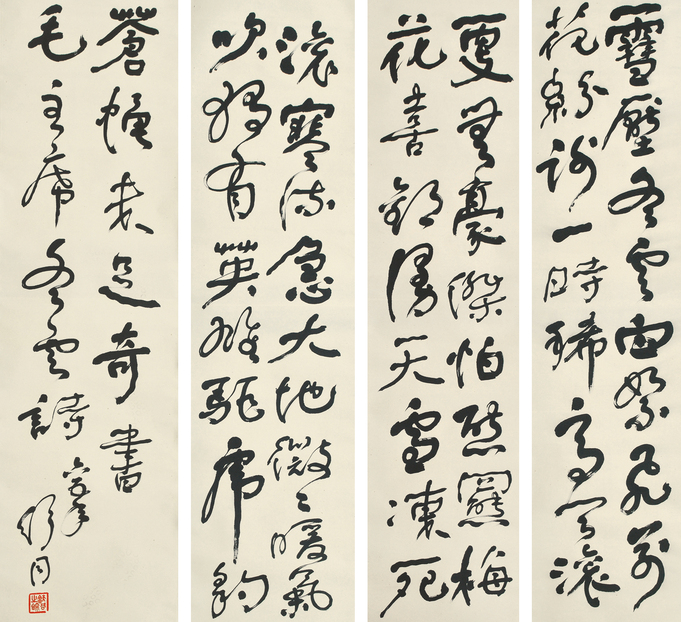 雪壓冬雲白絮飛萬
花紛謝一時稀高天滾
更無豪傑怕熊羆梅
花喜歡漫天雪凍死
滾寒流急大地微々暖氣
吹獨有英雄驅虎豹
蒼蠅未足奇書
毛主席冬雲詩
舒同